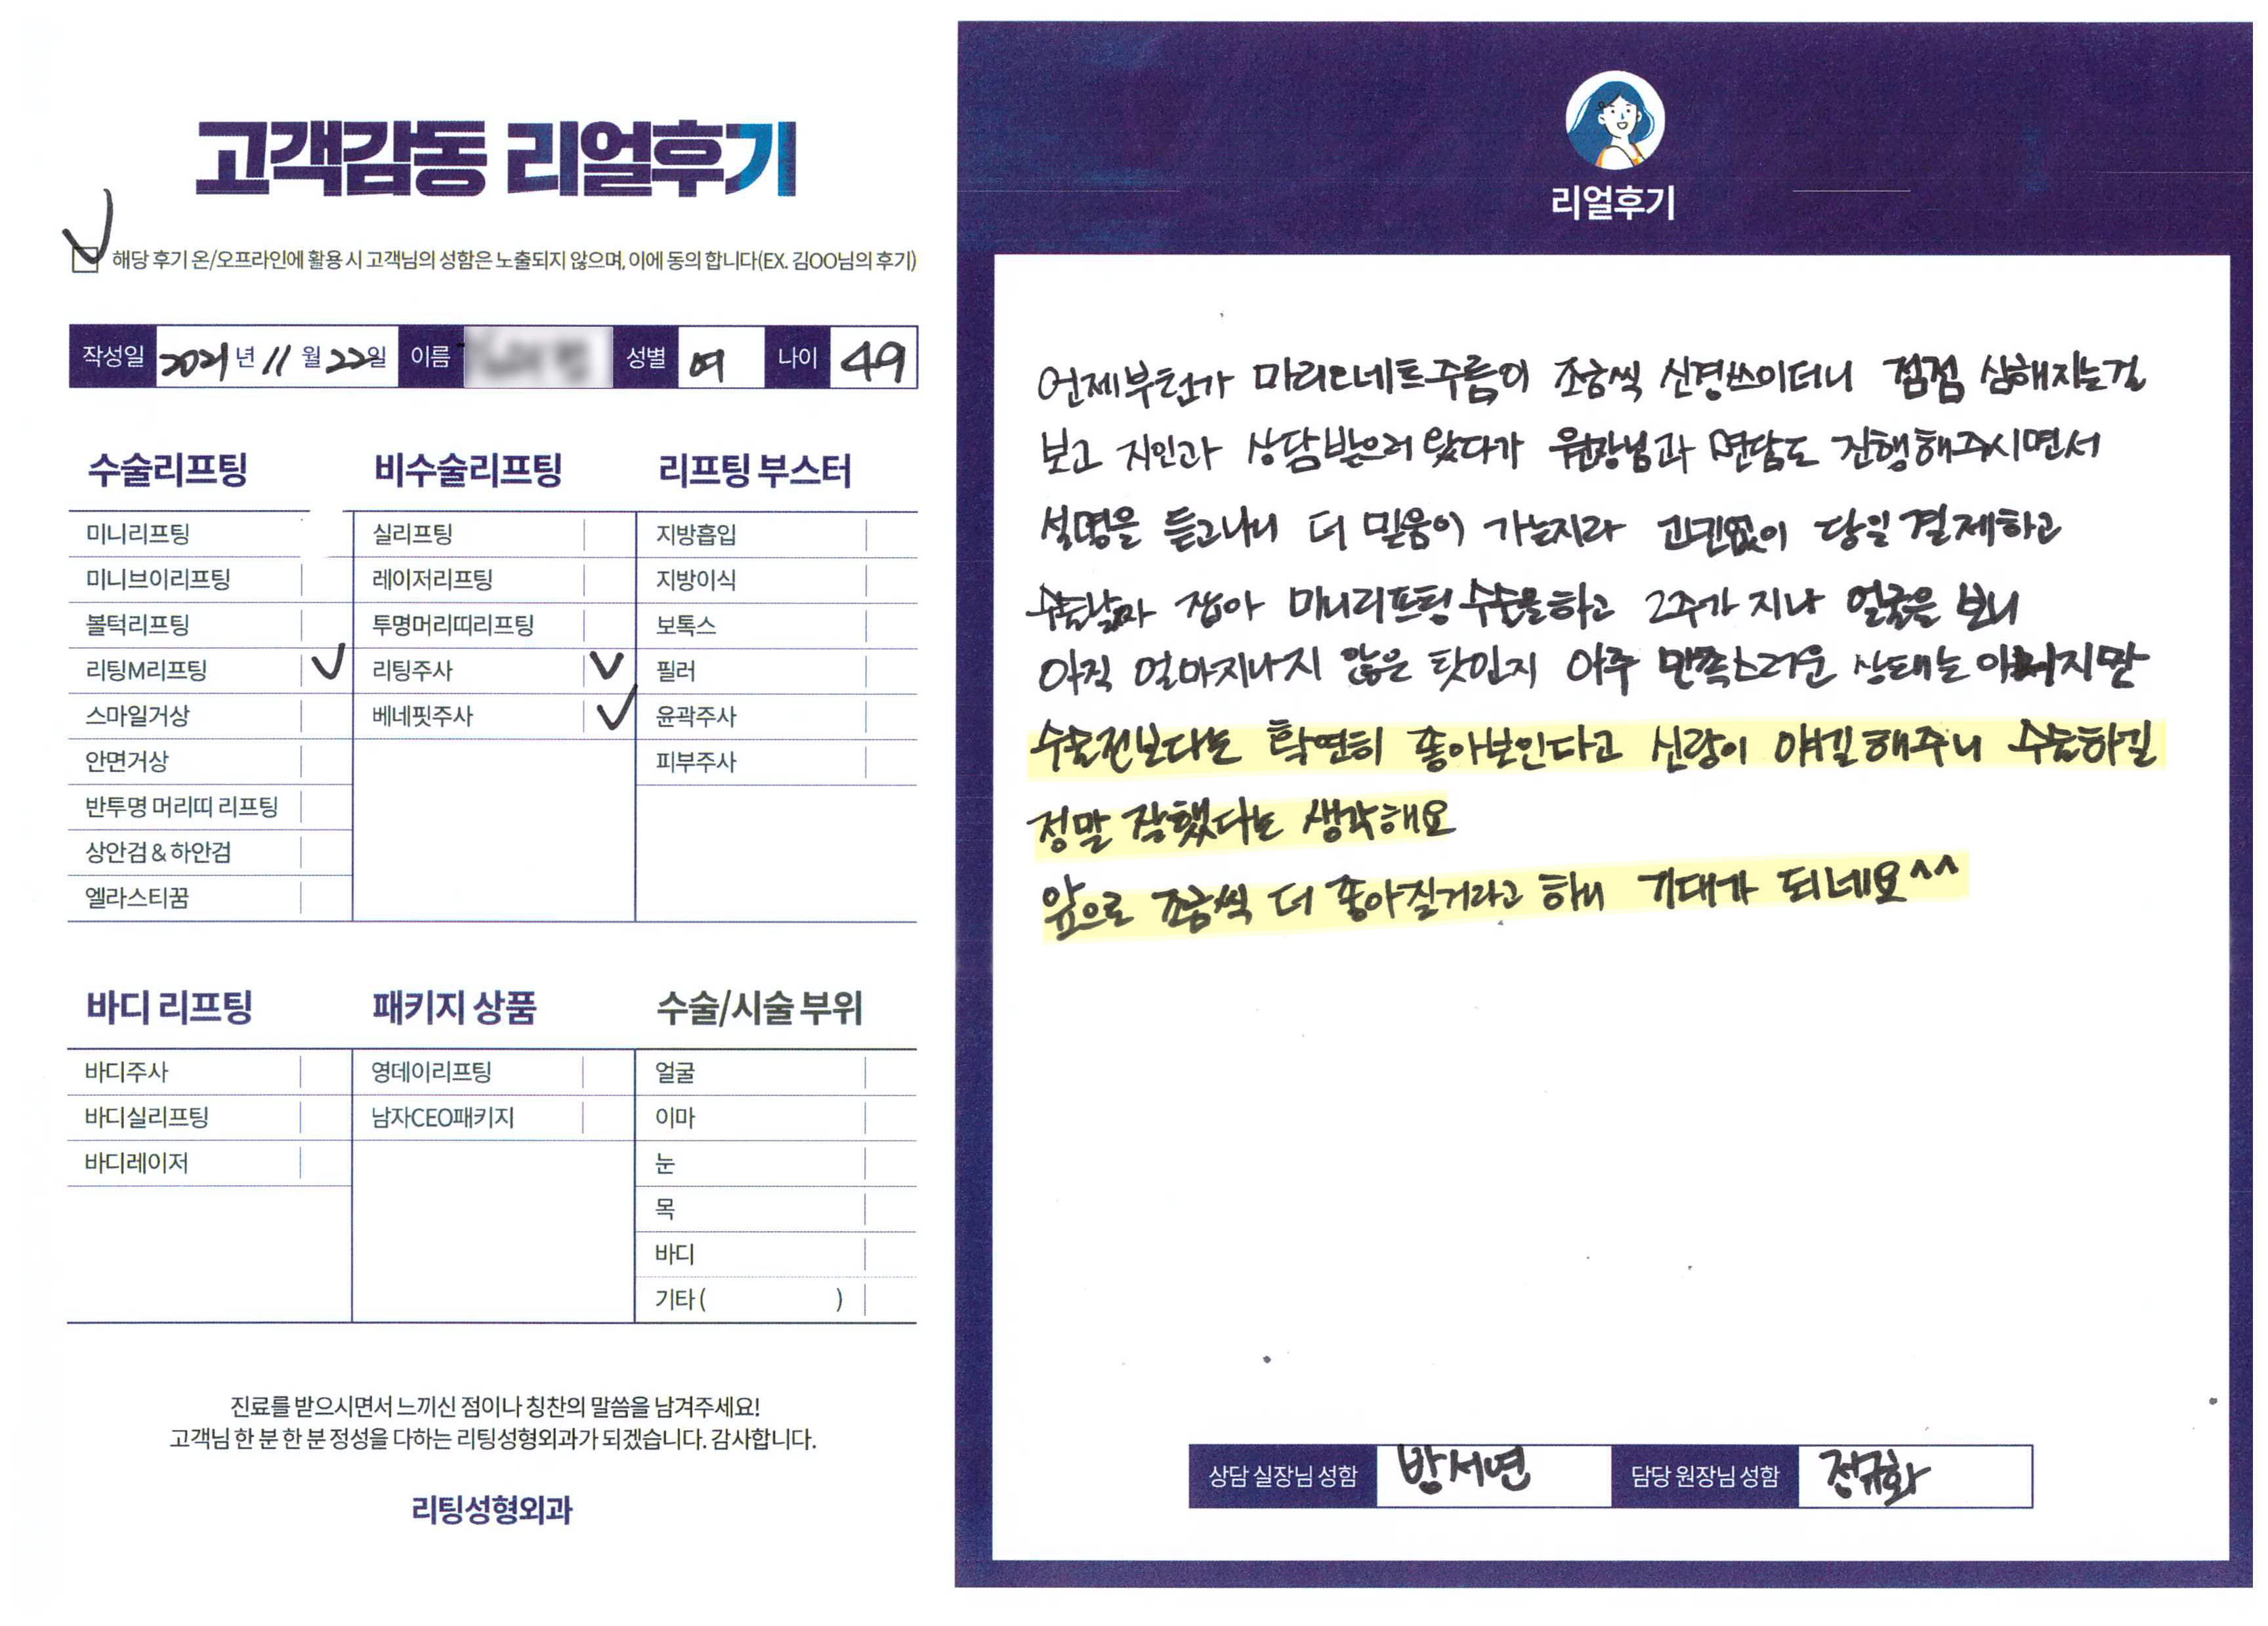 고객감동 리얼후기
해당 후기 온/오프라인에 활용 시 고객님의 성함은 노출되지 않으며, 이에 동의 합니다(EX. 김OO님의 후기)
작성일 2021년 11월 22일 이름 성별 여 나이 49
수술리프팅
미니리프팅
미니브이리프팅
볼턱리프팅
리팅M리프팅
스마일거상
안면거상
반투명 머리띠 리프팅
상안검 & 하안검
엘라스티꿈
비수술리프팅
실리프팅
레이저리프팅
투명머리띠리프팅
리팅주사
베네핏주사
리프팅 부스터
지방흡입
지방이식
보톡스
필러
윤곽주사
피부주사
바디 리프팅
바디주사
바디실리프팅
바디레이저
패키지 상품
영데이리프팅
남자CEO패키지
수술/시술 부위
얼굴
이마
눈
목
바디
기타 ( )
진료를 받으시면서 느끼신 점이나 칭찬의 말씀을 남겨주세요!
고객님 한 분 한 분 정성을 다하는 리팅성형외과가 되겠습니다. 감사합니다.
리팅성형외과
리얼후기
언제부턴가 마리오네트주름이 조금씩 신경쓰이더니 점점 심해지는걸
보고 지인과 상담받으러 왔다가 원장님과 면담도 진행해주시면서
설명을 듣고나니 더 믿음이 가는지라 고민없이 당일 결제하고
수술날짜 잡아 미니리프팅 수술을하고 2주가 지나 얼굴을 보니
아직 얼마지나지 않은 탓인지 아주 만족스러운 상태는 아니지만
수술전보다는 확연히 좋아보인다고 신랑이 얘길해주니 수술하길
정말 잘했다는 생각해요
앞으로 조금씩 더 좋아질거라고 하니 기대가 되네요^^
상담 실장님 성함 방서연 담당 원장님 성함 전규화